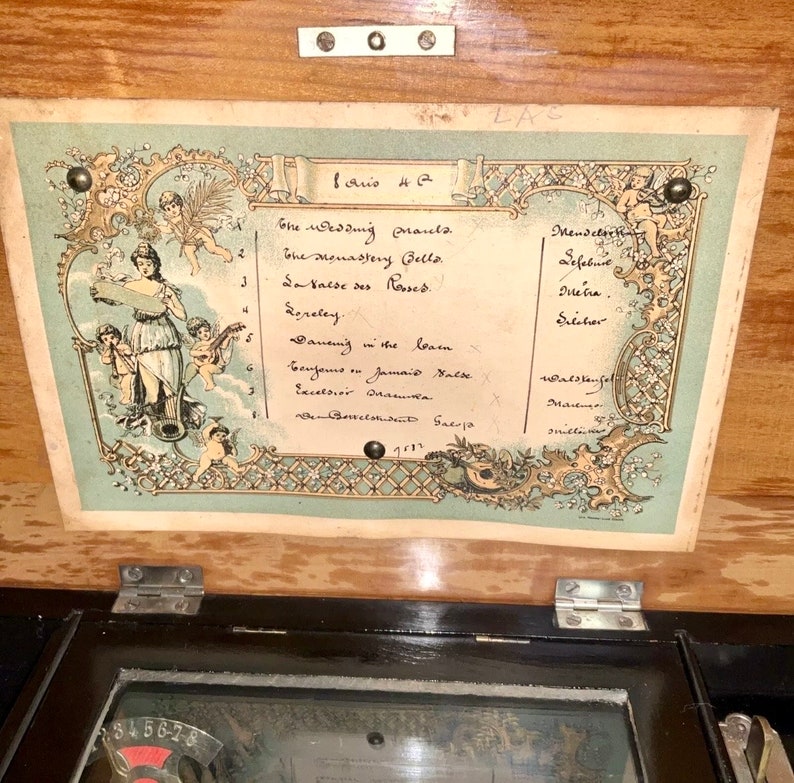 LAC
8 Airs 4 C
1 The Wedding March. Mendelssohn
2 The Monastery Bells. Lefebure
3 La Valse des Roses. Métra
4 Loreley. Silcher
5 Dancing in the Barn
6 Toujours ou Jamais Valse Waldteufel
7 Excelsior Mazurka Marenco
8 Der Bettelstudent Galop Millöcker
2 3 4 5 6 7 8